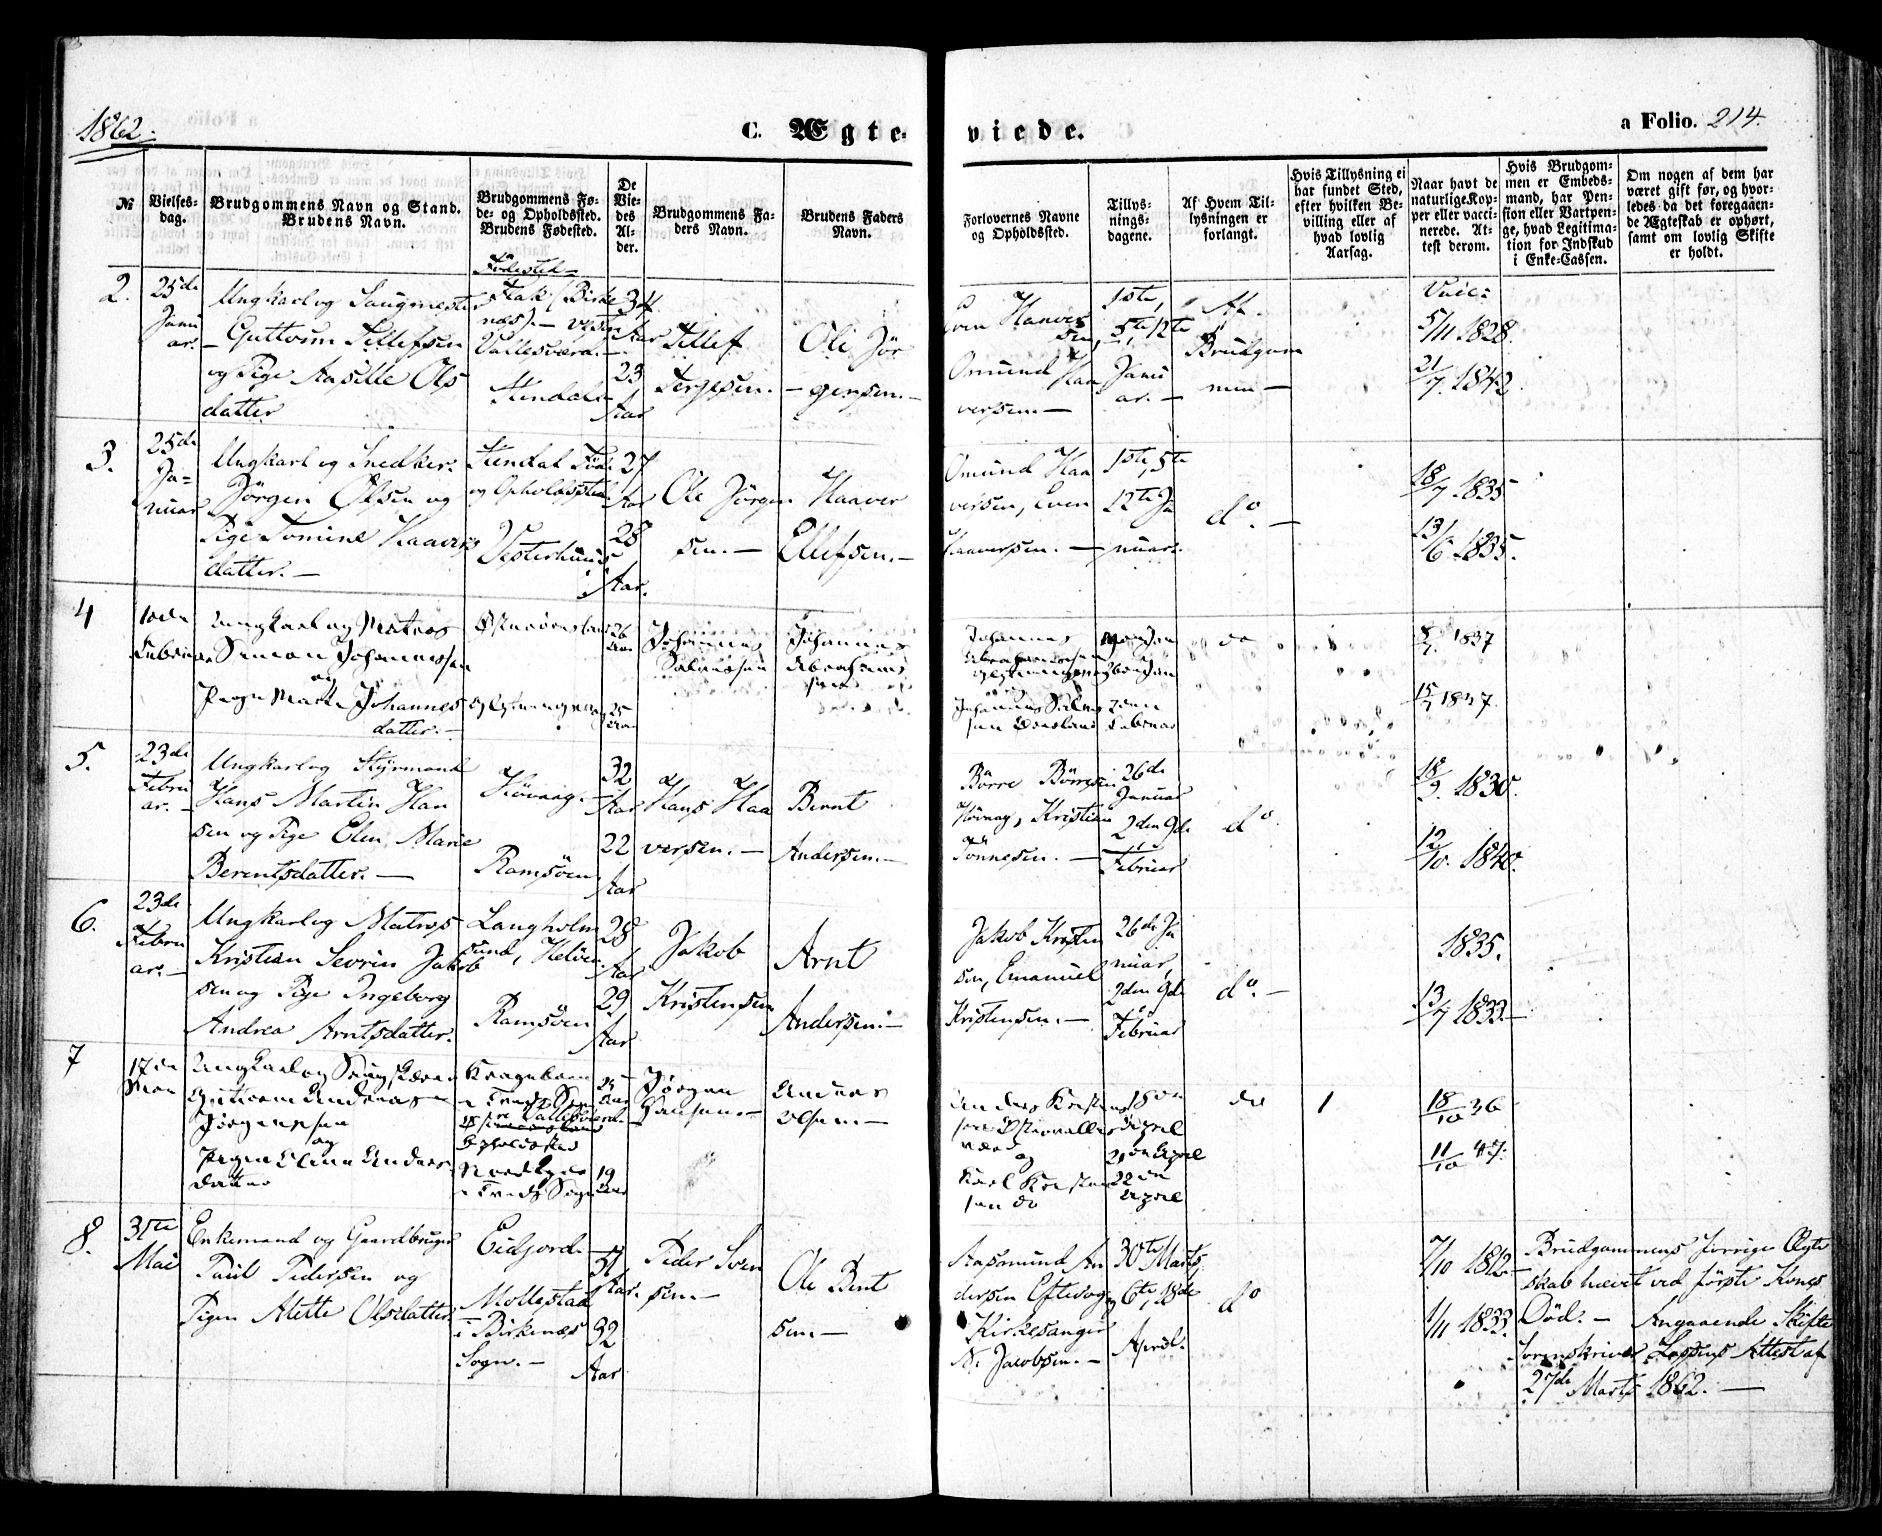 1862.
C. Ægte-
viede.
a Folio. 214.
№
Vielses-
dag.
Brudgommens Navn og Stand.
Brudens Navn.
Brudgommens Fø-
de- og Opholdssted.
Brudens Fødested.
De
Vie-
des
Al-
der.
Brudgommens Fa-
ders Navn.
Brudens Faders
Navn.
Forlovernes Navne
og Opholdssted.
Tillys-
nings-
dagene.
Af Hvem Til-
lysningen er
forlangt.
Hvis Tillysning ei
har fundet Sted,
efter hvilken Be-
villing eller af
hvad lovlig
Aarsag.
Naar havt de
naturlige Kop-
per eller vacci-
nerede. At-
test derom.
Hvis Brudgom-
men er Embeds-
mand, har Pen-
sion eller Vartpen-
ge, hvad Legitima-
tion for Indskud
i Enke-Cassen.
Om nogen af dem har
været gift før, og hvor-
ledes da det foregaaen-
de Ægteskab er ophørt,
samt om lovlig Skifte
er holdt.
2.
25de
Janu
ar.
Ungkarl og Saugmester
Guttorm Tellefsen
og Pige Aasille Ols
datter
Fødested
Flak (Birke
næs).
Vallesværd.
Stendal
34
Aar
23
Aar
Tellef
Terjesen.
Ole Jör
gensen.
Even Haaver
sen,
Omund Haa
versen.
1ste,
5te, 12te
Janu
ar.
Af
Brudgom
men
Vacc:
5/11 1828.
21/7. 1842
3.
25de
Ja-
nuar
Ungkarl og Snedker
Jörgen Olsen og
Pige Tomine Haavers
datter.
Stendal Föde
og Opholdssted
Vesterhuus
27
Aar
28
Aar.
Ole Jörgen
sen.
Haaver
Ellefsen.
Omund Haa
versen, Even
Haaversen.
1ste, 5te
12te Ja
nuar.
do.
18/7 1835
13/6 1835.
4
10de
Februar
Ungkarl og Matros
Simon Johannessen
og
Pigen Marthe Johannes
datter.
26
Aar
25
Aar
Johannes
Salvesen
Johannes
Abrahams
sen
Johannes
Abrahamsen
Johannes Salves
sen
2den
Februar
do
8/7 1837
15/7 1837.
5.
23de
Febru
ar.
Ungkarl og Styrmand
Hans Martin Han
sen og Pige Elen Marie
Berentsdatter.
Hövaag.
Ramsöen
32
Aar
22
Aar
Hans Haa
versen.
Bernt
Andersen.
Börre Börresen
Hövaag, Kristian
Tönnesen.
26de
Januar
2den 9de
Februar
do.
18/9. 1830.
12/10. 1840.
6.
23de
Febru
ar.
Ungkarl og Matros
Kristian Severin Jakob
sen og Pige Ingeborg
Andrea Arntsdatter.
Langholm
sund,
Ramsöen
28
Aar
29
Aar
Jakob
Kristensen
Arnt
Andersen.
Jakob Kristen
sen, Emanuel
Kristensen.
26de Ja
nuar,
2den 9de
Februar
do.
1835.
13/7 1833.
7
17de
Mai
Ungkarl og
Guttorm Andreas
Jörgensen
og
Pigen Anders
datter
25
Aar
19
Aar
Jörgen
Hansen.
Anders
Olsen.
Anders Kristen
sen
og
Karl Kristen
sen do
18de
April
21de April
22de
April
do
1
18/10 36
11/10 47.
8.
31te
Mai
Enkemand og Gaardbruger
Paul Pedersen og
Pigen Alette Olsdatter
Eidjord.
Mollestad
i Birkenæs
Sogn.
51
Aar.
32
Aar
Peder Sven
sen.
Ole Bent
sen.
Aasmund An
dersen Eftevaag
Kirkesanger
N. Jacobsen.
30te Marts,
6te, 18de
April.
do
7/10 1812
1/11 1833.
Brudgommens forrige Ægte
skab hævet ved förste Kones
Död. — Angaaende Skifte
Sorenskriver Lassens Attest af
27de Marts 1862.